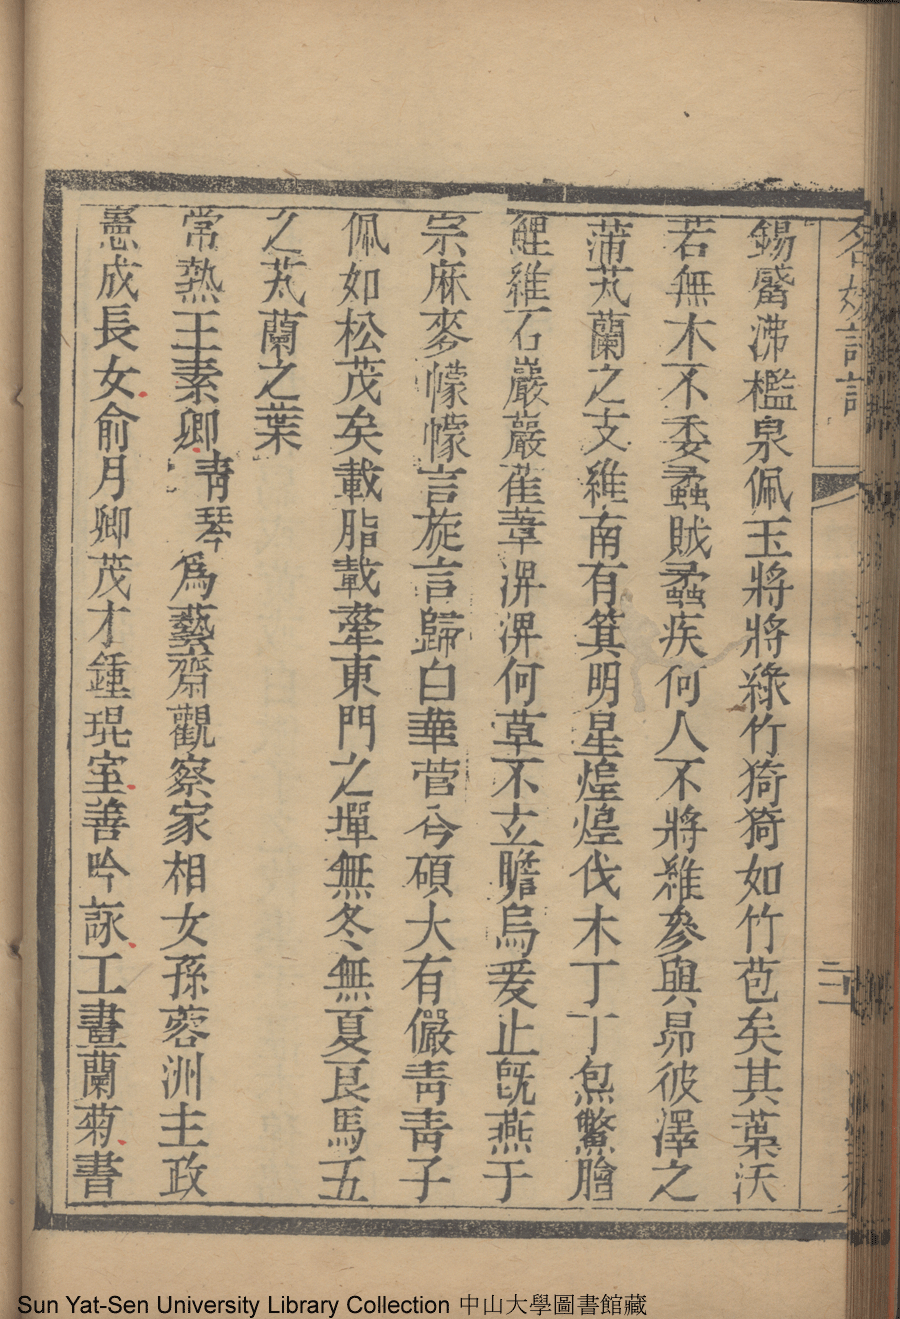 名媛詩話
二
錫觱沸檻泉佩玉將將綠竹猗猗如竹苞矣其葉沃
若無木不委蟊賊蟊疾何人不將維參與昴彼澤之
蒲芄蘭之支維南有箕明星煌煌伐木丁丁炰鱉膾
鯉維石巖巖萑葦淠淠何草不玄瞻烏爰止旣燕于
宗麻麥幪幪言旋言歸白華菅兮碩大有儼靑靑子
佩如松茂矣載脂載舝東門之墠無冬無夏良馬五
之芄蘭之葉
常熱王素卿靑琴爲藝齋觀察家相女孫蓉洲主政
憲成長女俞月卿茂才鍾琨室善吟詠工畫蘭菊書
Sun Yat-Sen University Library Collection 中山大學圖書館藏